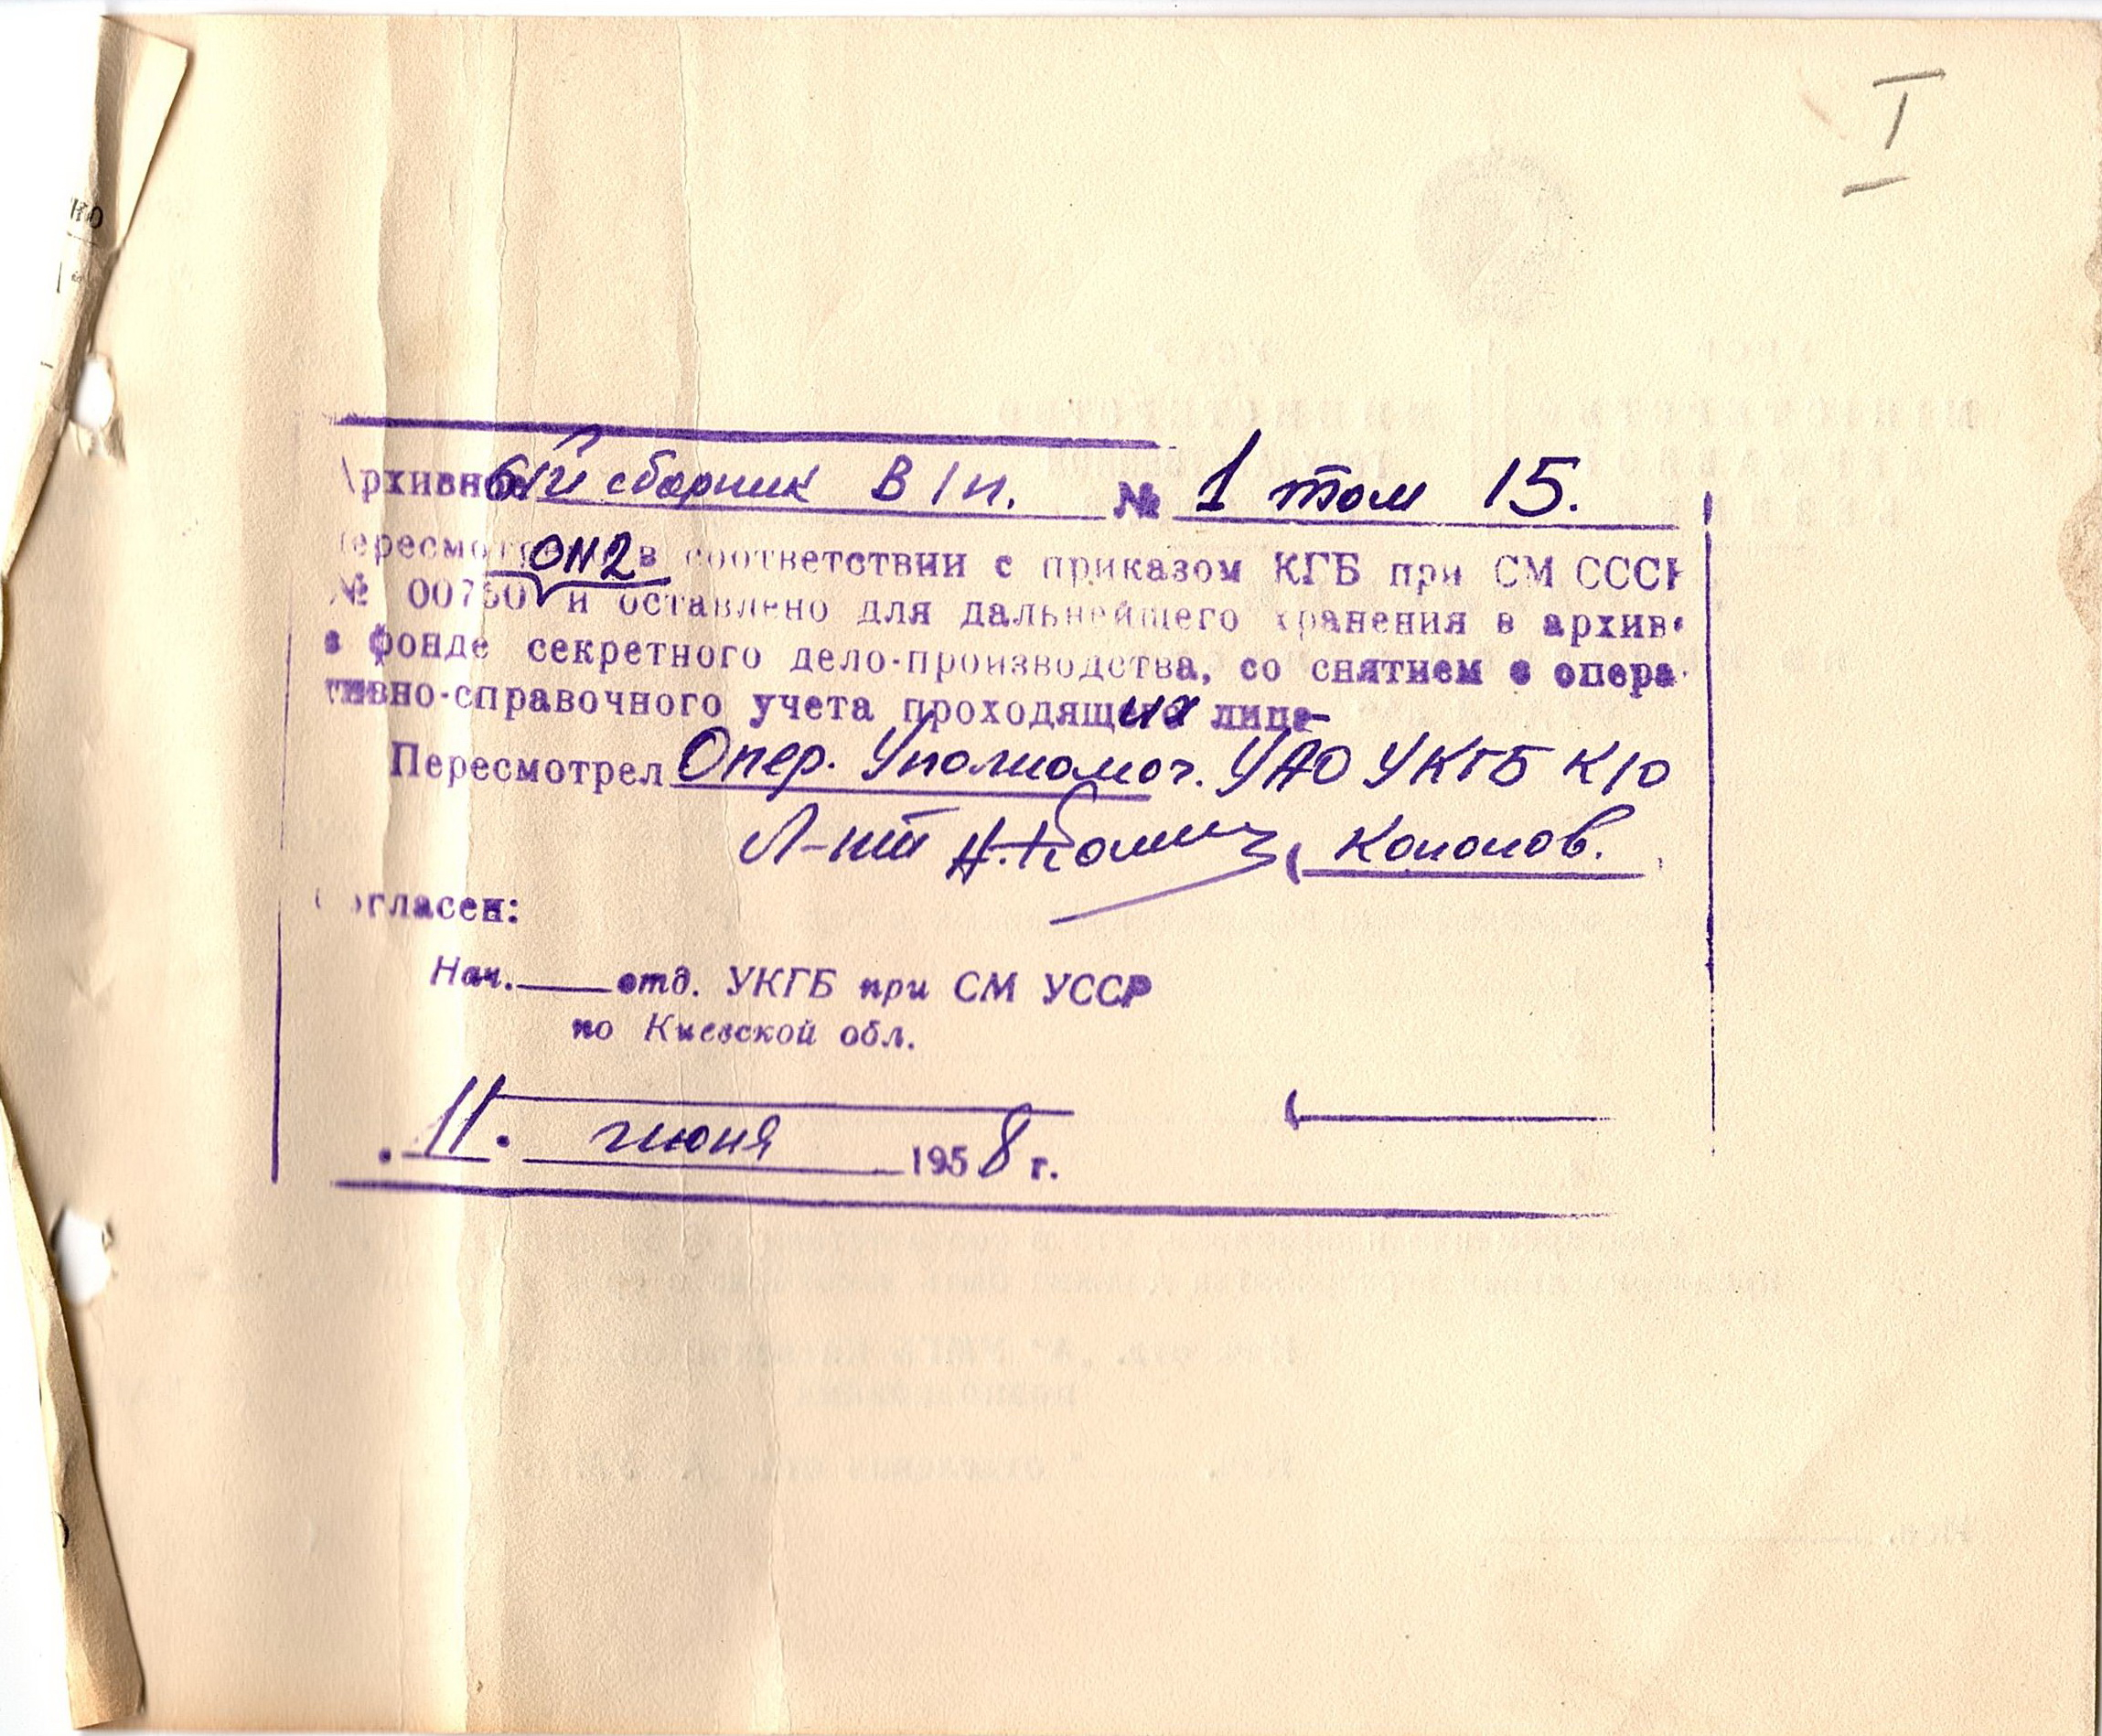 I
Архивный сборник В/п. № 1 том 15.
пересмотрен в соответствии с приказом КГБ при СМ СССР
№ 00750 и оставлено для дальнейшего хранения в архиве
в фонде секретного дело-производства, со снятием с опера-
тивно-справочного учета проходящих лиц
Пересмотрел Опер. Уполномоч. УАО УКГБ К/О
Л-нт ( Кононов.
Согласен:
Нач. отд. УКГБ при СМ УССР
по Киевской обл.
11. июня 1958 г.